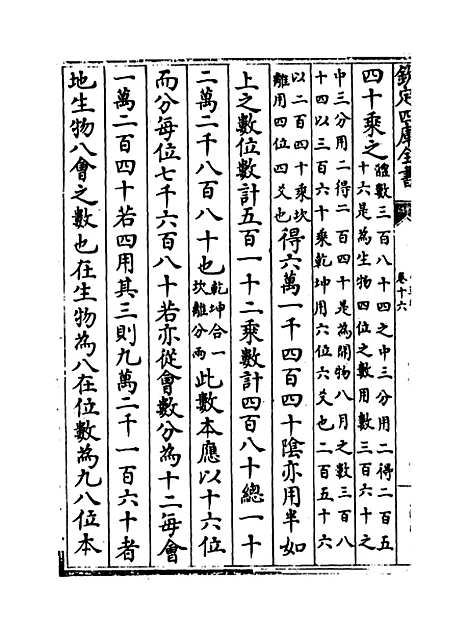 欽定四庫全書
卷十六
四十乘之體數三百八十四之中三分用二得二百五
十六是為生物四位之數用數三百六十之
中三分用二得二百四十是為開物八月之數三百八
十四以三百六十乘乾坤用六位六爻也二百五十六
以二百四十乘坎
離用四位四爻也得六萬一千四百四十陰亦用半如
上之數位數計五百一十二乘數計四百八十總一十
二萬二千八百八十也乾坤合一坎離分兩此數本應以十六位
而分每位七千六百八十若亦從會數分為十二每會
一萬二百四十若四用其三則九萬二千一百六十者
地生物八會之數也在生物為八在位數為九八位本